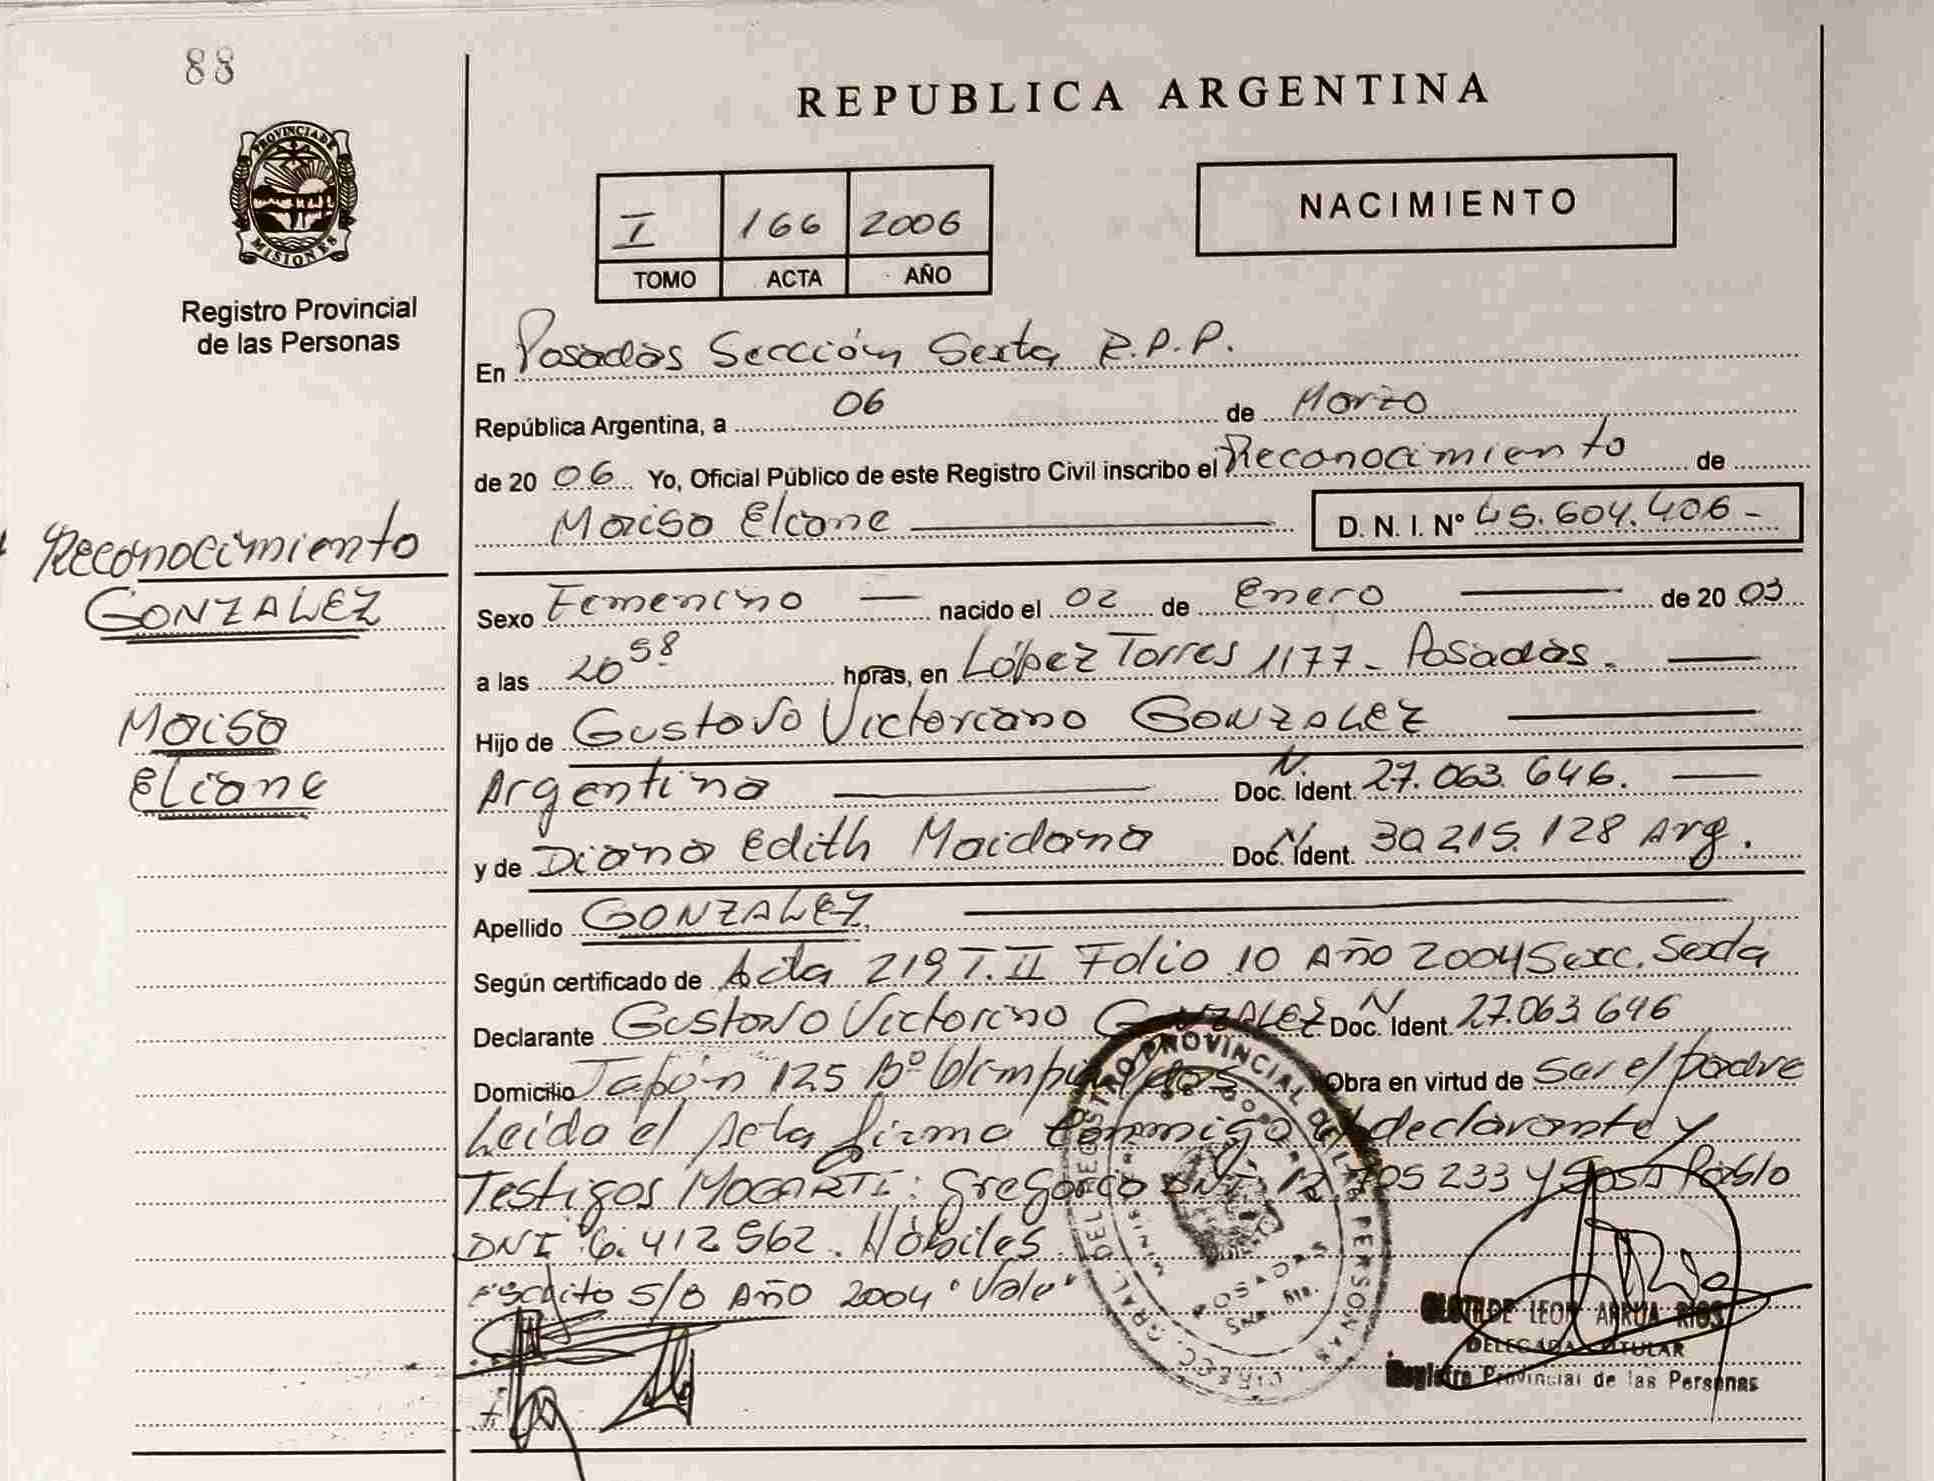 88
REPUBLICA ARGENTINA
PROVINCIA DE
MISIONES
Registro Provincial
de las Personas
I 166 2006
TOMO ACTA AÑO
NACIMIENTO
En Posadas Sección Sexta R.P.P.
República Argentina, a 06 de Marzo
de 20 06 Yo, Oficial Público de este Registro Civil inscribo el Reconocimiento de
Maisa Eliane D. N. I. Nº 45.604.406-
Reconocimiento
GONZALEZ
Maisa
Eliane
Sexo Femenino nacido el 02 de Enero de 20 03
a las 20 58 horas, en López Torres 1177 - Posadas.
Hijo de Gustavo Victoriano GONZALEZ
Argentino Doc. Ident. N. 27.063.646.
y de Diana Edith Maidana Doc. Ident. N. 30.215.128 Arg.
Apellido GONZALEZ
Según certificado de Acta 219 T.II Folio 10 Año 2004 Secc. Sexta
Declarante Gustavo Victorino GONZALEZ Doc. Ident. N 27.063 646
Domicilio Japón 125 Bº Obra en virtud de ser el padre
Leída el Acta firma conmigo el declarante y
Testigos Gregorio DNI 705 233 y Sosa Pablo
DNI 6.412 562. Hábiles
Escrito S/B Año 2004 "Vale"
DIREC. GRAL. DEL REGISTRO PROVINCIAL DE LAS PERSONAS
POSADAS
CLOTILDE LEON ARRUA RIOS
DELEGADA TITULAR
Registro Provincial de las Personas